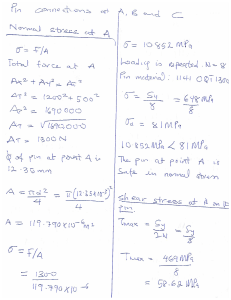 Pin connections at A, B and C
Normal stress at A
σ = F/A
Total force at A
Ax² + Ay² = Ar²
Ar² = 1200² + 500²
Ar² = 1690000
Ar = √1690000
Ar = 1300N
of pin at point A is
12.35 mm
A = πd²/4 = π(12.35×10⁻³)²/4
A = 119.790×10⁻⁶ m²
σ = F/A
= 1300/119.790×10⁻⁶
σ = 10.852 MPa
Loading is repeated N = 8
Pin material: 1141 OQT 1300
σ = Sy/8
σd = 81 MPa
10.852 MPa < 81 MPa
The pin at point A is
safe in normal stress
Shear stress at A on
pin
Tmax = Sy/2N = Sy/8
Tmax = 469 MPa/8
= 58.62 MPa